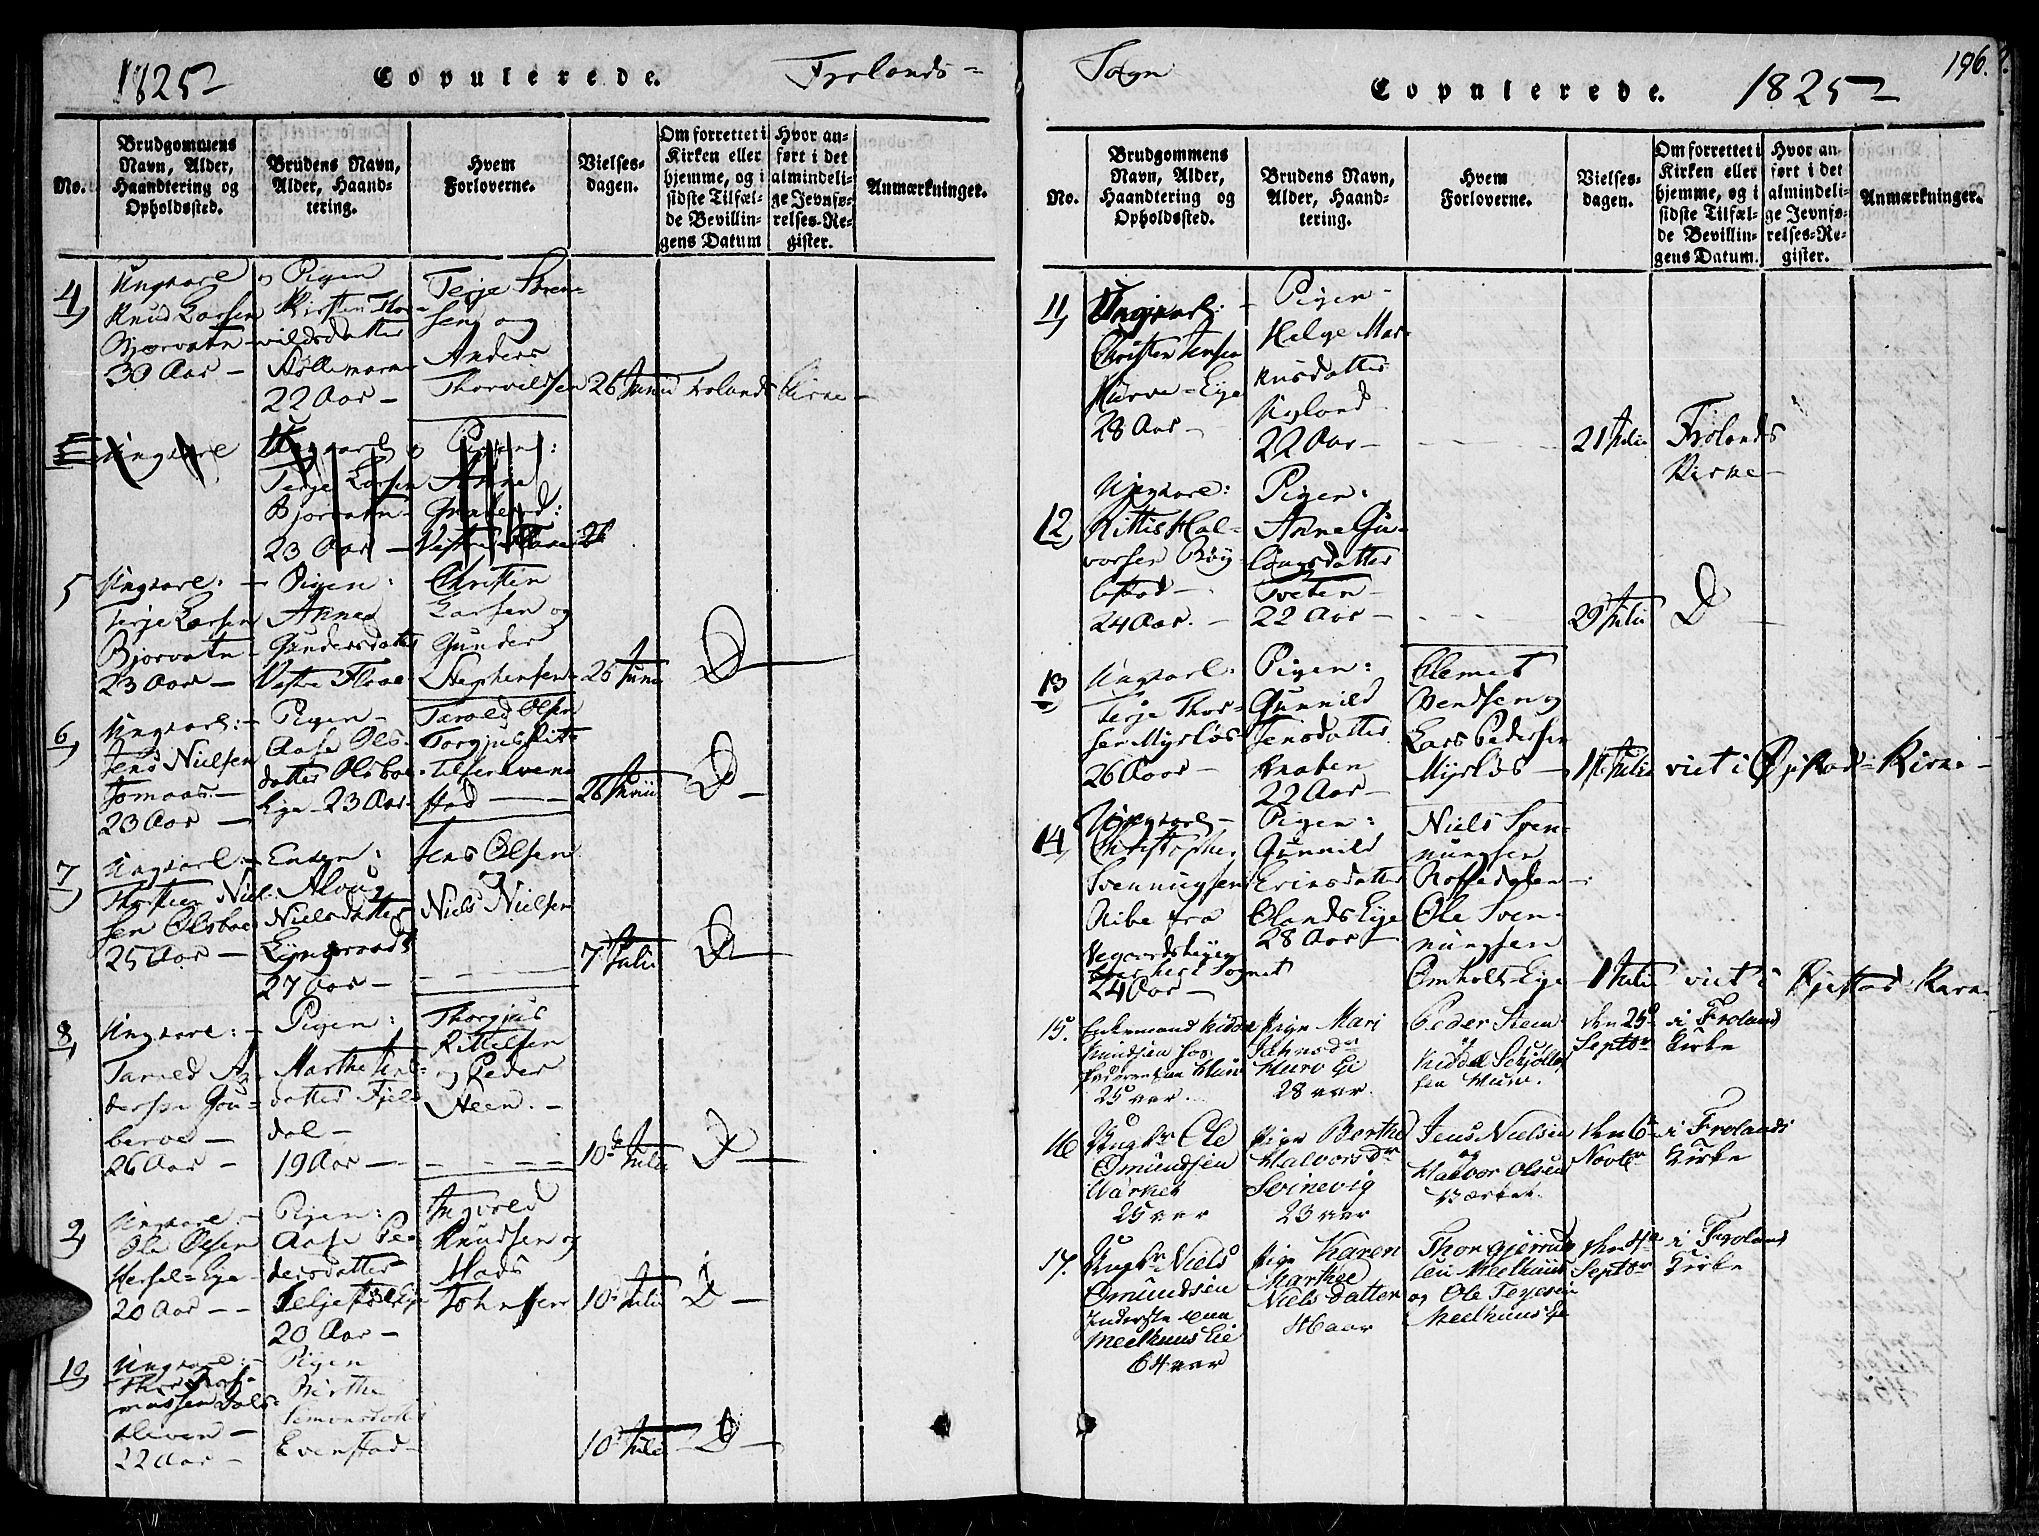 1825
Copulerede.
Frolands-
No.
Brudgommens Navn, Alder, Haandtering og Opholdssted.
Brudens Navn, Alder, Haandtering.
Hvem Forloverne.
Vielses-dagen.
Om forrettet i Kirken eller hjemme, og i sidste Tilfælde Bevillingens Datum
Hvor anført i det almindelige Jevnførelses-Register.
Anmærkninger.
4
Ungkarl
Knud Larsen
Bjorvatn
30 Aar -
Pigen
Kirsten Thor-
vildsdatter
22 Aar -
Terje Soren-
sen og
Anders
Thorvildsen
26 Junii
Frolands Kirke -
Ungkarl
Terje Larsen
Bjorvatn
23 Aar -
Pigen:
Anne
Vestre
26
5
Ungkarl: -
Terje Larsen
Bjorvatn -
23 Aar -
Pigen:
Anne
Gundersdatter
Vestre Flaae
Christen
Larsen og
Gunder
Stephensen
26 Junii
D -
6
Ungkarl: -
Jens Nielsen
Jomaas -
23 Aar -
Pigen -
Aase Ols-
datter Olsboe
Eye 23 Aar
Tarald Olsen
Torgjus Kit-
telsen Evene
stad -
26 Junii
D -
7
Ungkarl: -
Thorsten Niel-
sen Olsboe
25 Aar -
Enken:
Aloug
Nielsdatter
27 Aar -
Jens Olsen
og
Niels Nielsen
7 Julii
D -
8
Ungkarl: -
Tarald An-
dersen
26 Aar -
Pigen:
Marthe Jens-
datter Fjeld
dal -
19 Aar -
Thorgjus
Kittelsen
og Peder
Steen. -
10de Julii
D -
9
Ungkarl: -
Ole Olsen
Hersel-Eye
20 Aar - -
Pigen:
Aase Pe-
dersdatter
20 Aar -
Ingvold
Knudsen og
Mads
Johnsen
10 Julii
D -
10
Ungkarl: -
Thor Ras-
mussen Dals-
kleven -
22 Aar -
Pigen
Birthe
Simonsdatter
Evenstad -
10 Julii
D -
Sogn
Copulerede.
1825
196.
No.
Brudgommens Navn, Alder, Haandtering og Opholdssted.
Brudens Navn, Alder, Haandtering.
Hvem Forloverne.
Vielses-dagen.
Om forrettet i Kirken eller hjemme, og i sidste Tilfælde Bevillingens Datum.
Hvor anført i det almindelige Jevnførelses-Register.
Anmærkninger.
11
Ungkarl: -
Christen Jensen
Hurve-Eye
28 Aar -
Pigen -
Helge Mar-
kusdatter
Nyland
22 Aar -
21 Julii
Frolands
Kirke -
12
Ungkarl:
Kittil Hal-
vorsen Bøy-
lestad -
24 Aar. -
Pigen:
Anne Gu-
laugsdatter
Tveten -
22 Aar -
29 Julii
D -
13
Ungkarl:
Terje Thor-
sen Myrløs
26 Aar -
Pigen:
Gunnild
Jensdatter
Knaben
22 Aar -
Clemet
Bendsen og
Lars Pedersen
Myrløs -
Julii
viet i Øjestad - Kirke -
14
Ungkarl -
Christopher
Svenningsen
Ribe fra
Vegaardsheyen
Sognet
24 Aar -
Pigen:
Gunnild
Ericsdatter
Olands Eye
28 Aar -
Niels Sven-
nungsen
Ole Sven-
nungsen
Omholt-Eye
1 Julii
viet i Øjestad Kirke
15.
Enkemand Kiddel
Knudsen
25 aar.
Pige Mari
Jahnsdr
Hurv Ei
28 aar.
Peder Steen
og
Kiddel
sen Hurv.
den 25d
Septbr
i Froland
Kirke
16
Ungkr Ole
Omundsen
Wærket
25 aar
Pige Berthe
Halvorsdr
Svinevig
23 aar
Jens Nielsen
og
Halvor Olsen
Værket.
den 6te
Novbr
i Frolands
Kirke
17.
Ungkr Niels
Omundsen
Inderste
Meelhuus Eie
64 aar
Pige Karen
Marthe
Niels datter
46 aar
Meelhuus
og Ole Terjesen
Meelhuus Ei
den 4de
Septbr
i Froland
Kirke